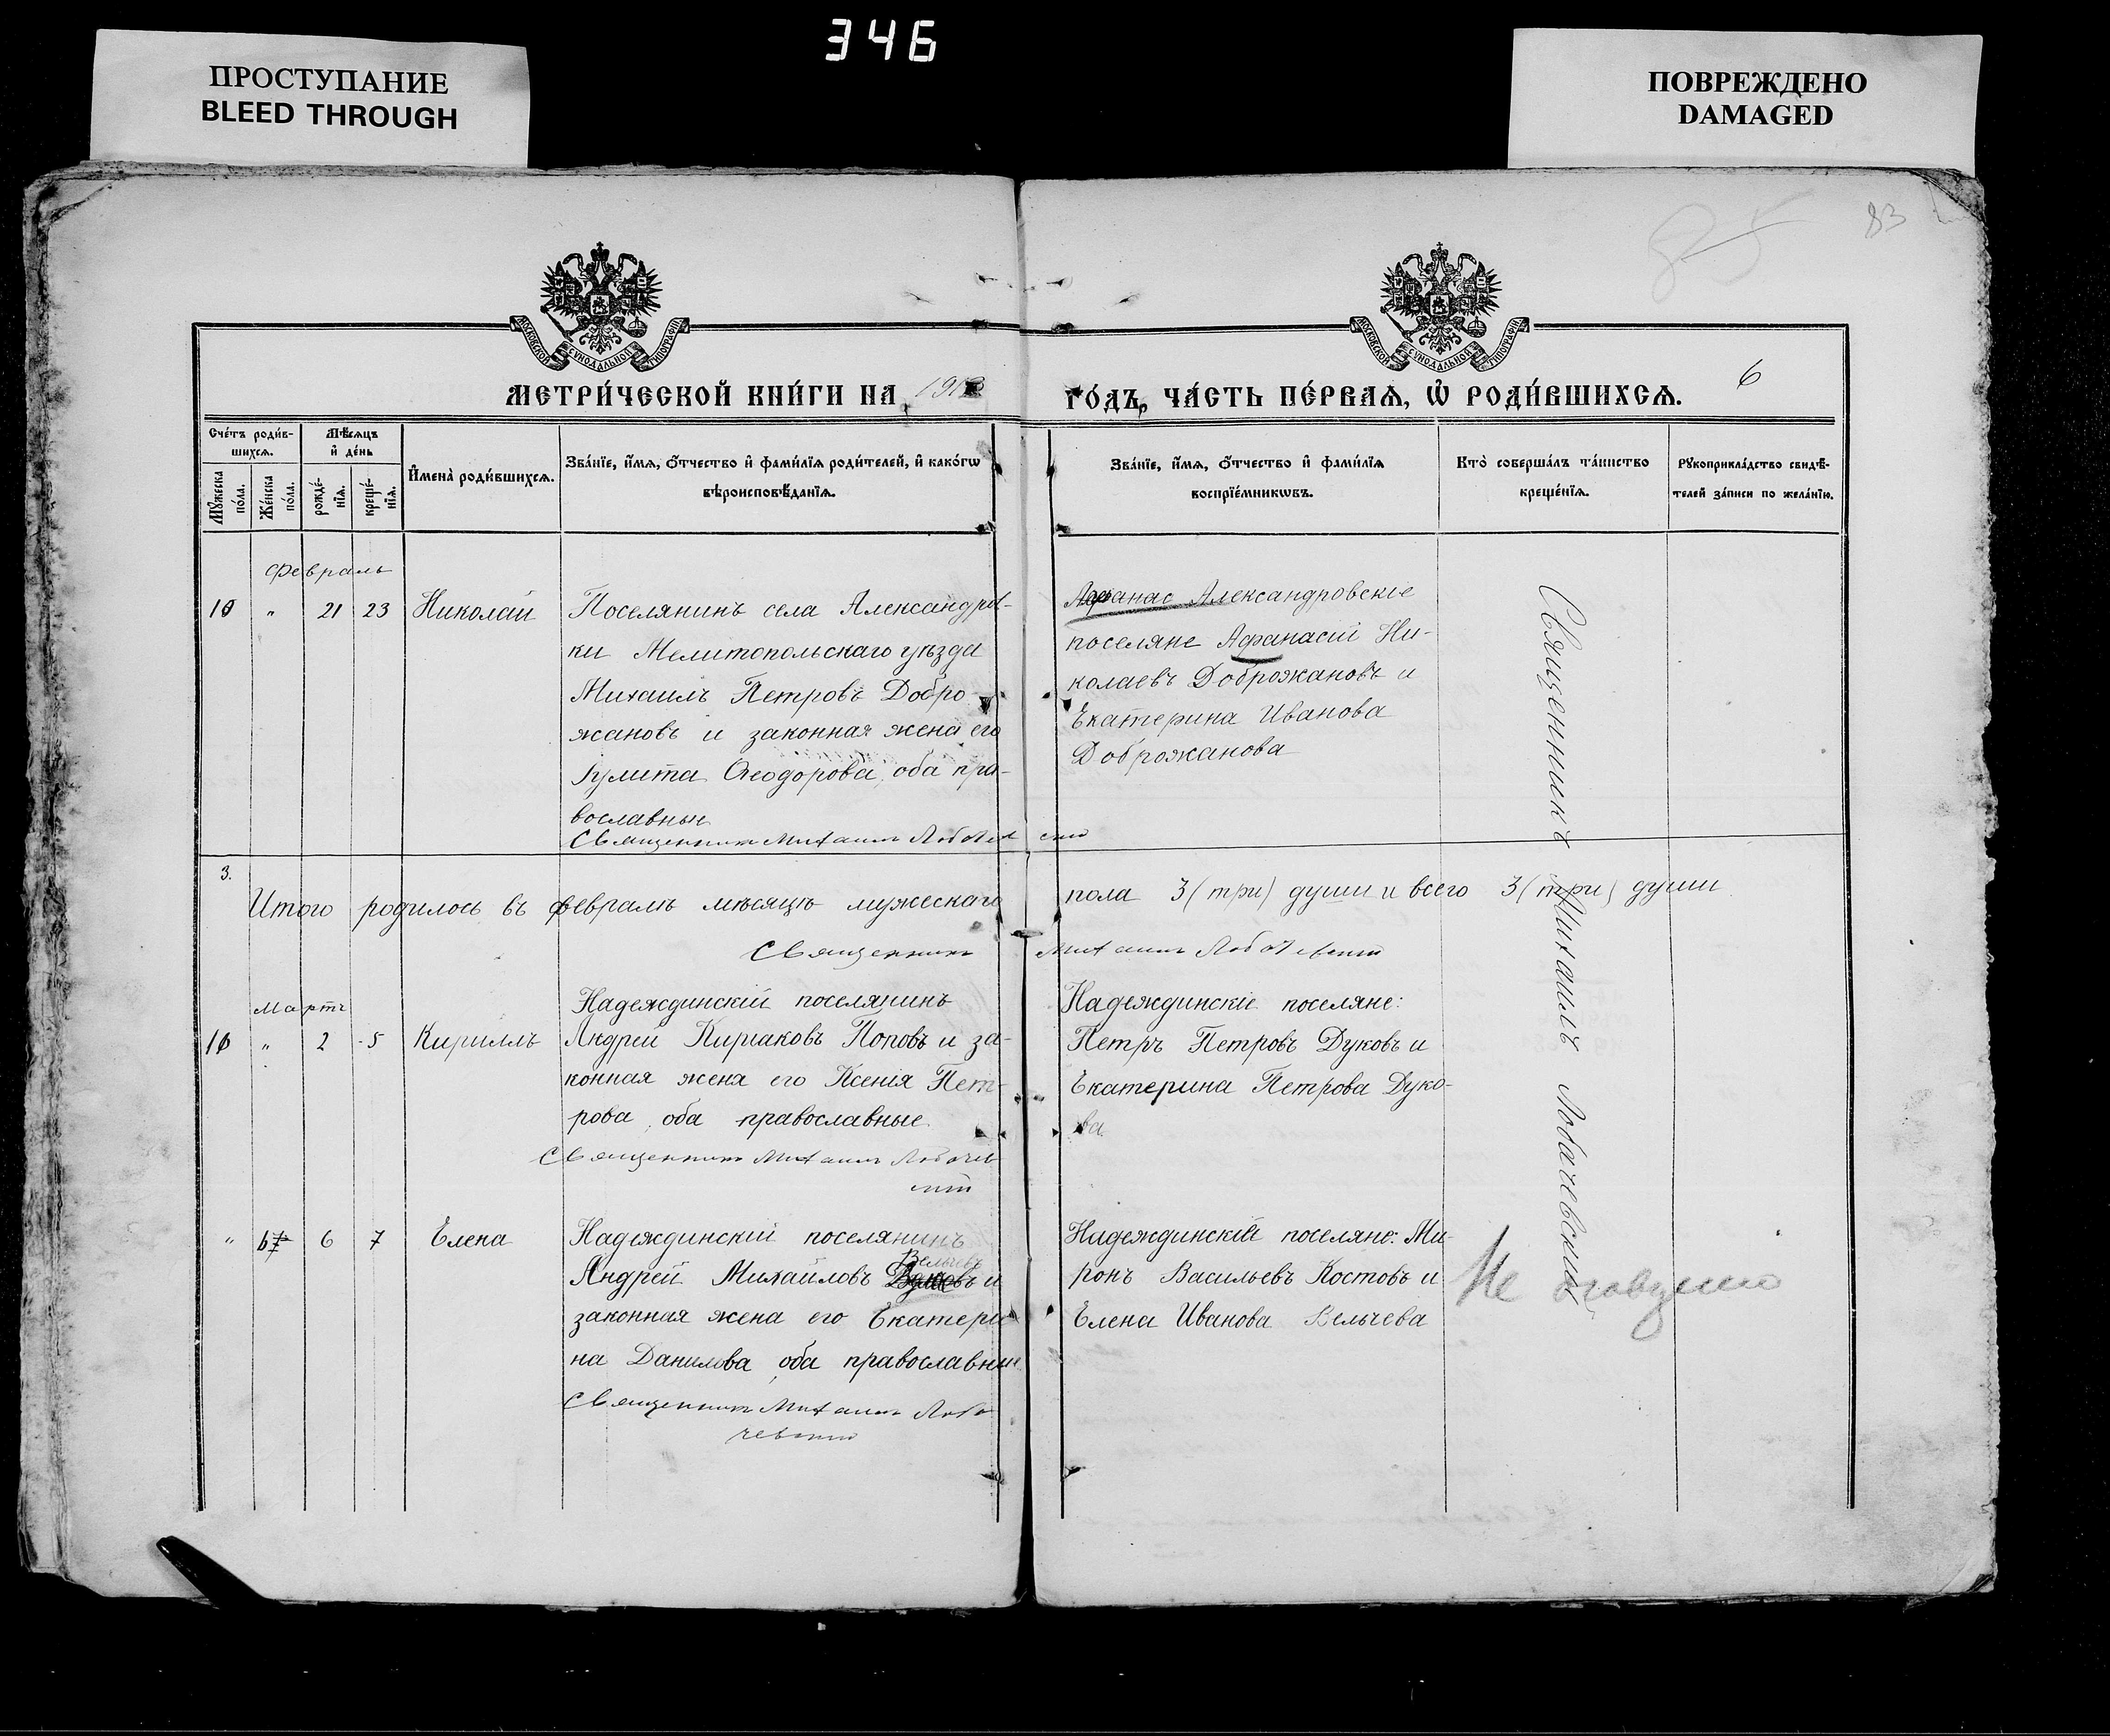 346
ПРОСТУПАНИЕ
BLEED THROUGH
ПОВРЕЖДЕНО
DAMAGED
85
83
МОСКОВСКОЙ СѴНОДАЛЬНОЙ ТИПОГРАФІИ
МОСКОВСКОЙ СѴНОДАЛЬНОЙ ТИПОГРАФІИ
МЕТРИ́ЧЕСКОЙ КНИ́ГИ НА 1913 ГО́ДЪ, ЧА́СТЬ ПЕ́РВАѦ, Ѡ҆ РОДИ́ВШИХСѦ.
6
Сче́тъ роди́в-
шихсѧ.
Мꙋ́жеска по́ла.
Же́нска по́ла.
Мѣ́сѧцъ
и҆ де́нь
рожде́-
нїѧ.
креще́-
нїѧ.
И҆мена̀ роди́вшихсѧ.
Зва́нїе, и҆́мѧ, ѻ҆́тчество и҆ фами́лїѧ роди́телей, и҆ како́гѡ
вѣроисповѣ́данїѧ.
Зва́нїе, и҆́мѧ, ѻ҆́тчество и҆ фами́лїѧ
воспрїе́мникѡвъ.
Кто̀ соверша́лъ та́инство
креще́нїѧ.
Рꙋкоприкла́дство свидѣ́-
телей за́писи по жела́нїю.
Февраль
10 " 21 23 Николай
Поселянинъ села Александров-
ки Мелитопольскаго уѣзда
Михаилъ Петровъ Добро-
жановъ и законная жена его
Iулита Ѳеодорова, оба пра-
вославны
Священникъ Михаилъ Лобачевскій
Афанас Александровскіе
поселяне Афанасій Ни-
колаевъ Доброжановъ и
Екатерина Иванова
Доброжанова
Священникъ Михаилъ Лобачевскій
3.
Итого родилось въ февралѣ мѣсяцѣ мужескаго пола 3 (три) души и всего 3 (три) души
Священникъ Михаилъ Лобачевскій
Мартъ
" 2 5 Кириллъ
Надеждинскій поселянинъ
Андрей Киріаковъ Поповъ и за-
конная жена его Ксенія Пет-
рова, оба православные
Священникъ Михаилъ Лобачев-
скій
Надеждинскіе поселяне:
Петръ Петровъ Дуковъ и
Екатерина Петрова Дуко-
ва.
" 6 6 7 Елена
Надеждинскій поселянинъ
Вельчевъ
Андрей Михайловъ и
законная жена его Екатери-
на Данилова, оба православные
Священникъ Михаилъ Лоба-
чевскій
Надеждинскіе поселяне: Ми-
ронъ Васильевъ Костовъ и
Елена Иванова Вельчева
Не